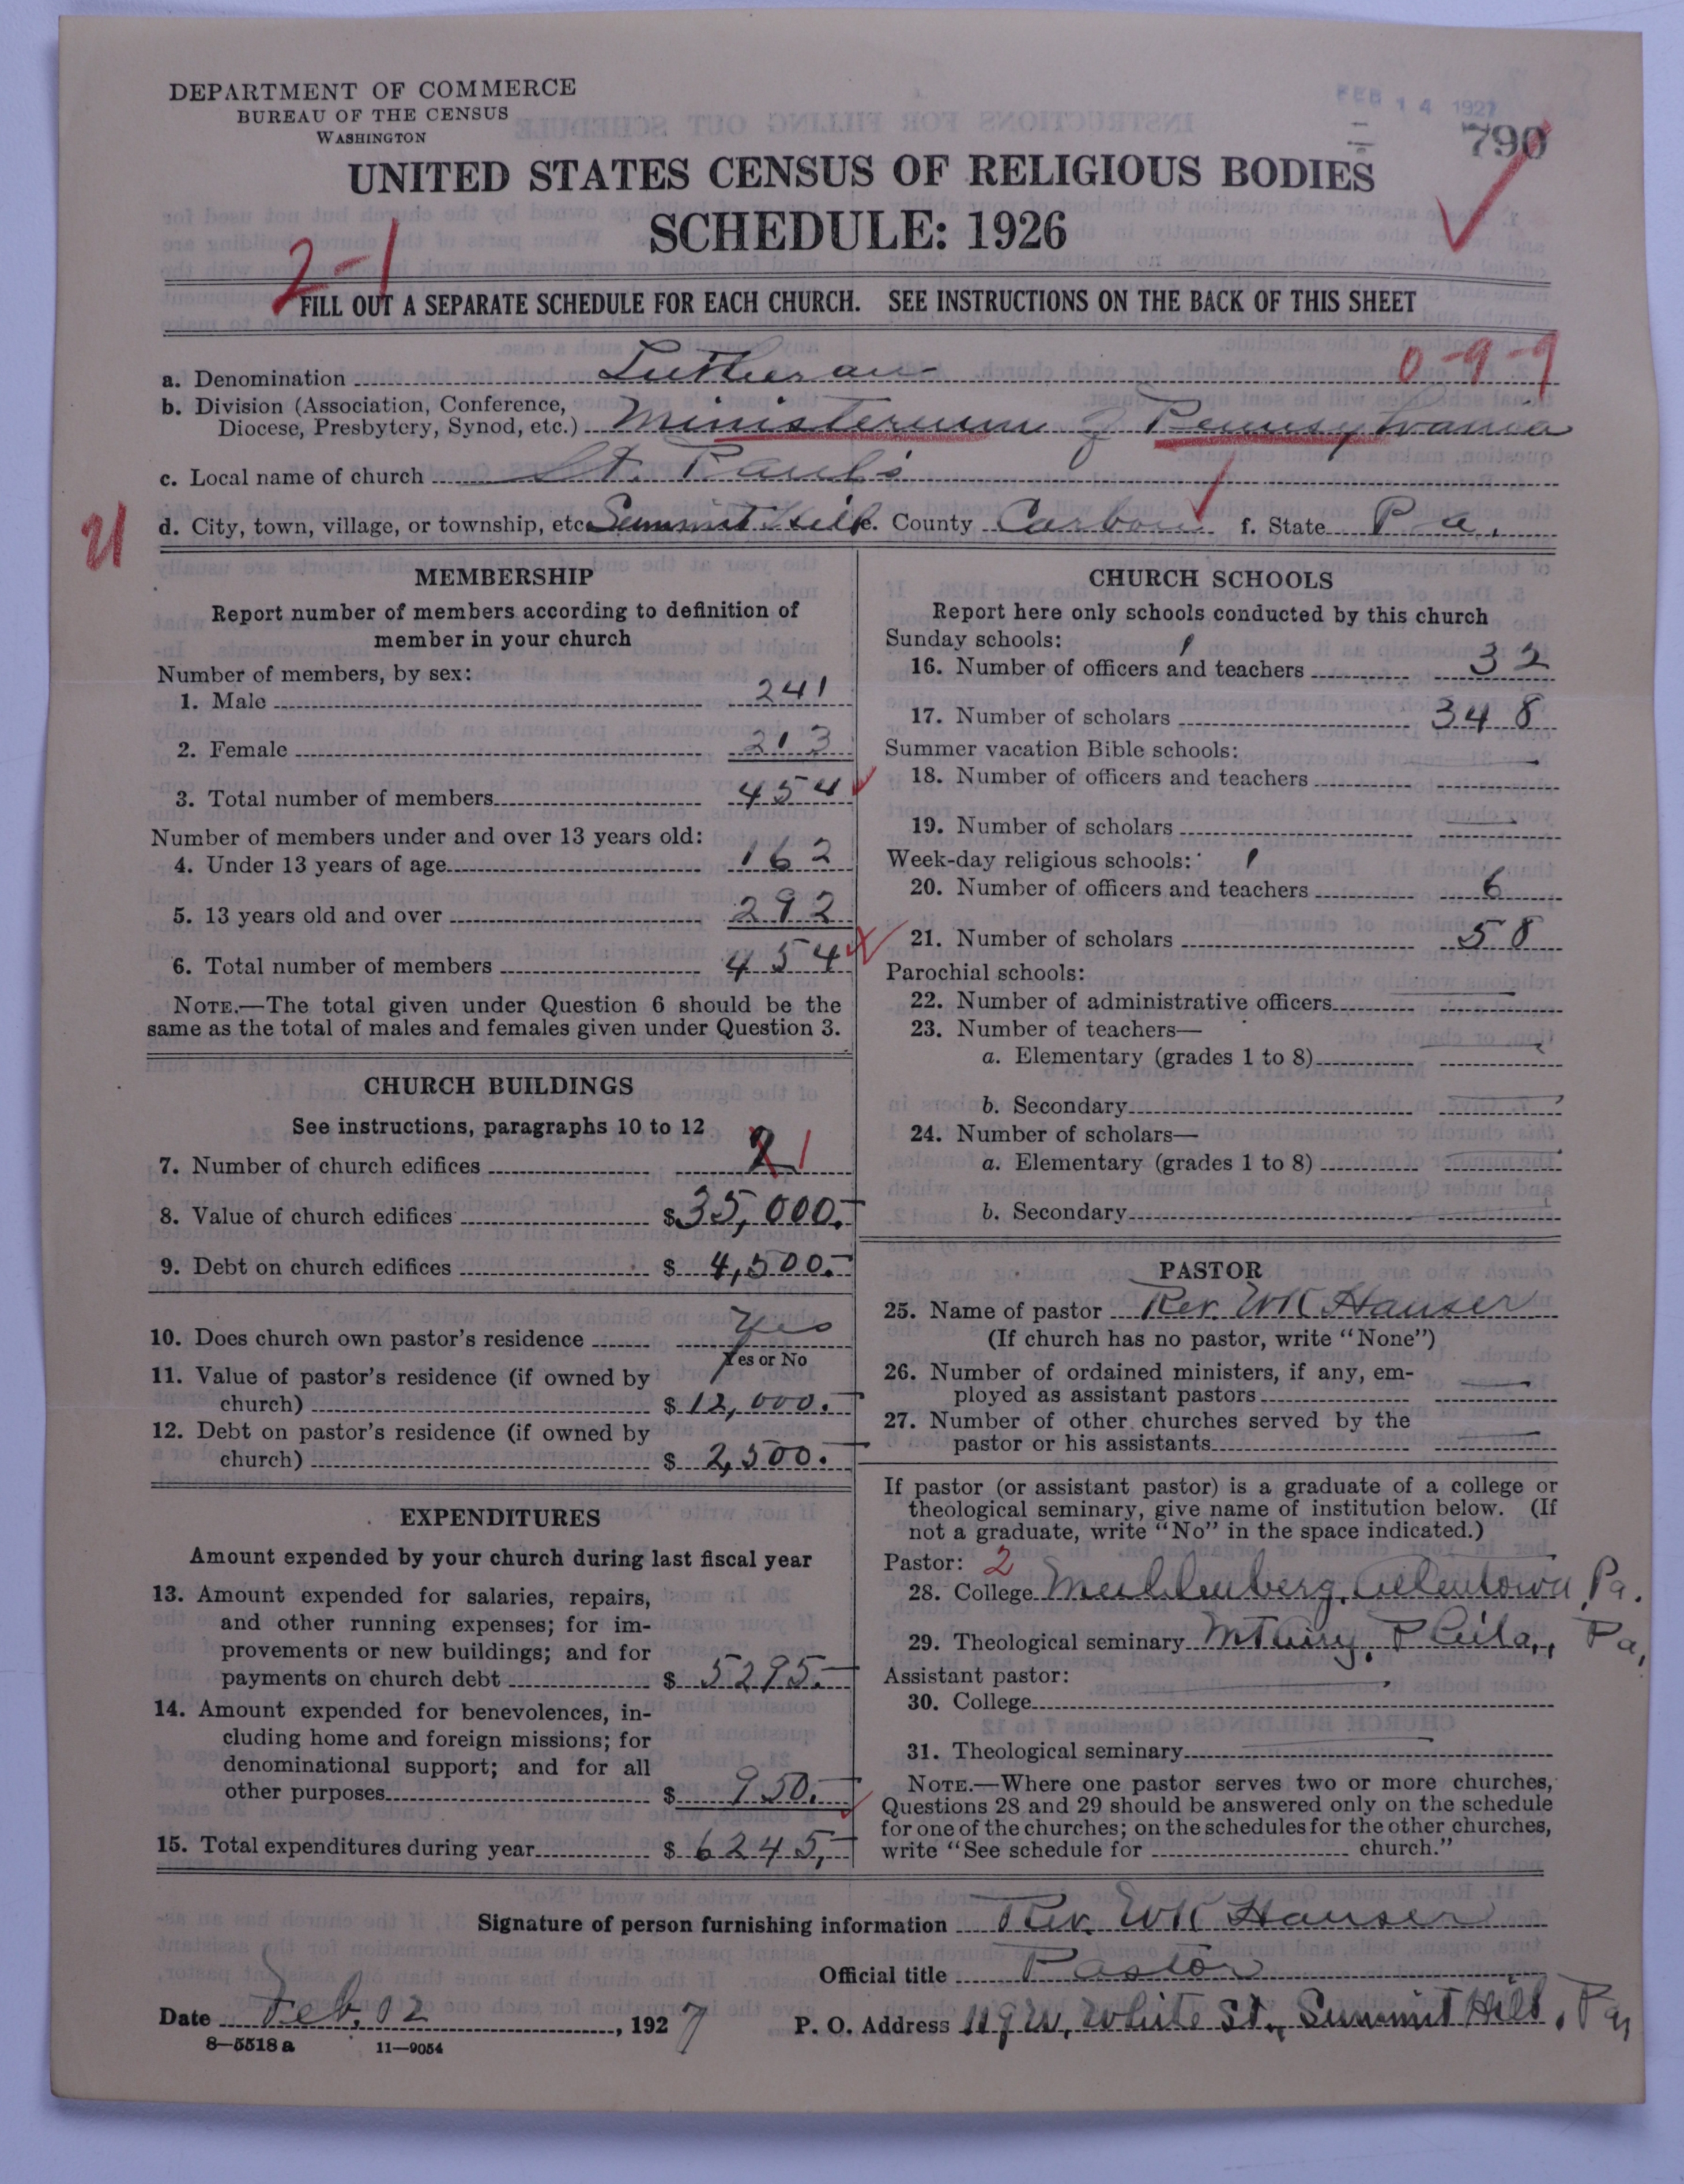 DEPARTMENT OF COMMERCE
BUREAU OF THE CENSUS
WASHINGTON
FEB 14 1927
790
UNITED STATES CENSUS OF RELIGIOUS BODIES
SCHEDULE: 1926
2-1
FILL OUT A SEPARATE SCHEDULE FOR EACH CHURCH. SEE INSTRUCTIONS ON THE BACK OF THIS SHEET
a. Denomination Lutheran 0-9-9
b. Division (Association, Conference,
Diocese, Presbytery, Synod, etc.) Ministerium of Pennsylvania
c. Local name of church St. Paul's
d. City, town, village, or township, etc. Summit Hill e. County Carbon f. State Pa.
MEMBERSHIP
Report number of members according to definition of
member in your church
Number of members, by sex:
1. Male 241
2. Female 213
3. Total number of members 454
Number of members under and over 13 years old:
4. Under 13 years of age 162
5. 13 years old and over 292
6. Total number of members 454
NOTE.—The total given under Question 6 should be the
same as the total of males and females given under Question 3.
CHURCH BUILDINGS
See instructions, paragraphs 10 to 12
7. Number of church edifices 2 1
8. Value of church edifices $35,000.—
9. Debt on church edifices $ 4,500.—
10. Does church own pastor's residence Yes
Yes or No
11. Value of pastor's residence (if owned by
church) $ 12,000.—
12. Debt on pastor's residence (if owned by
church) $ 2,500.—
EXPENDITURES
Amount expended by your church during last fiscal year
13. Amount expended for salaries, repairs,
and other running expenses; for im-
provements or new buildings; and for
payments on church debt $ 5295.—
14. Amount expended for benevolences, in-
cluding home and foreign missions; for
denominational support; and for all
other purposes $ 950.—
15. Total expenditures during year $ 6245.—
CHURCH SCHOOLS
Report here only schools conducted by this church
Sunday schools: 1
16. Number of officers and teachers 32
17. Number of scholars 348
Summer vacation Bible schools:
18. Number of officers and teachers —
19. Number of scholars —
Week-day religious schools: 1
20. Number of officers and teachers 6
21. Number of scholars 58
Parochial schools:
22. Number of administrative officers —
23. Number of teachers—
a. Elementary (grades 1 to 8) —
b. Secondary —
24. Number of scholars—
a. Elementary (grades 1 to 8) —
b. Secondary —
PASTOR
25. Name of pastor Rev. WK Hauser
(If church has no pastor, write "None")
26. Number of ordained ministers, if any, em-
ployed as assistant pastors —
27. Number of other churches served by the
pastor or his assistants —
If pastor (or assistant pastor) is a graduate of a college or
theological seminary, give name of institution below. (If
not a graduate, write "No" in the space indicated.)
Pastor: 2
28. College Muhlenberg, Allentown, Pa.
29. Theological seminary Mt Airy, Phila., Pa,
Assistant pastor:
30. College —
31. Theological seminary —
NOTE.—Where one pastor serves two or more churches,
Questions 28 and 29 should be answered only on the schedule
for one of the churches; on the schedules for the other churches,
write "See schedule for church."
Signature of person furnishing information Rev. WK Hauser
Official title Pastor
Date Feb. 12, 1927 P. O. Address W. White St., Summit Hill, Pa,
8—5518a 11—9054